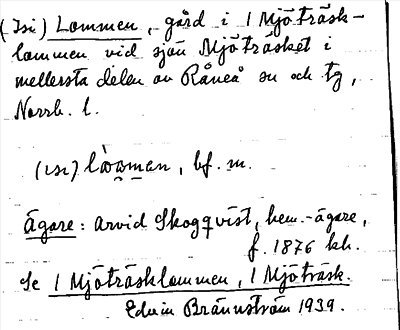 (Isi) Lommen, gård i 1 Mjöträsk-
lommen vid sjön Mjöträsket i
mellersta delen av Råneå sn och tg,
Norrb. l.
(ısı) bf. m.
Ägare: Arvid Skogqvist, hem.-ägare,
f. 1876 kh.
Se 1 Mjöträsklommen, 1 Mjöträsk.
Edvin Brännström 1939.